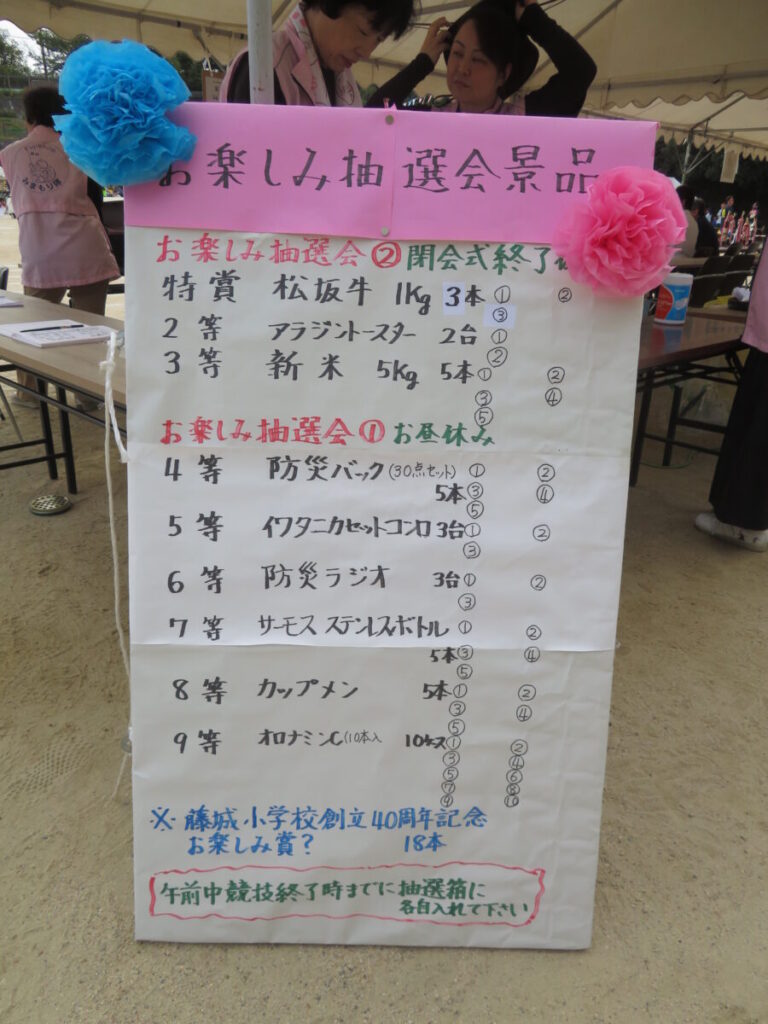 お楽しみ抽選会景品
お楽しみ抽選会② 閉会式終了
特賞 松坂牛 1Kg 3本 ① ②
③
2等 アラジントースター 2台 ①
②
3等 新米 5Kg 5本 ① ②
③ ④
⑤
お楽しみ抽選会① お昼休み
4等 防災バック(30点セット) ① ②
5本 ③ ④
⑤
5等 イワタニカセットコンロ 3台 ① ②
③
6等 防災ラジオ 3台 ① ②
③
7等 サーモス ステンレスボトル ① ②
5本 ③ ④
⑤
8等 カップメン 5本 ① ②
③ ④
⑤
9等 オロナミンC(10本入 10ケース ① ②
③ ④
⑤ ⑥
⑦ ⑧
⑨ ⑩
※ 藤城小学校創立40周年記念
お楽しみ賞? 18本
午前中競技終了時までに抽選箱に
各自入れて下さい
みまもり隊